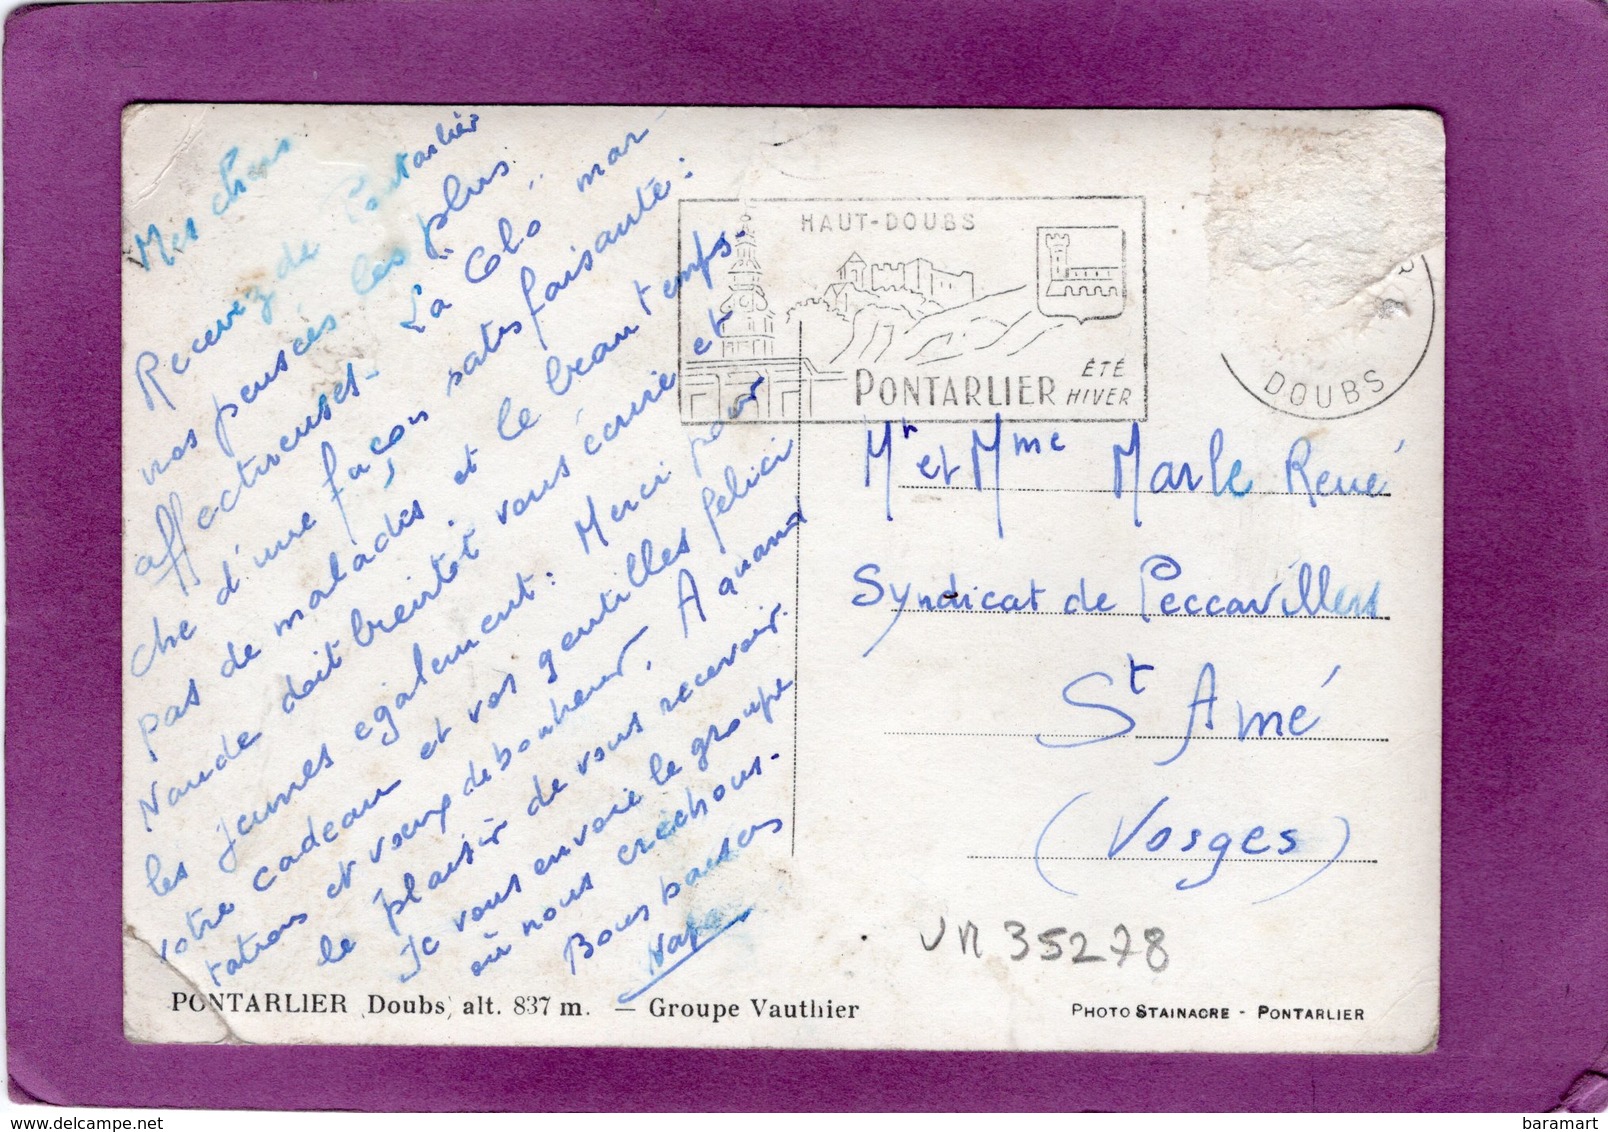 Mes chers
Recevez de Pontarlier
nos pensées les plus
affectueuses. La Colo mar-
che d'une façon satisfaisante:
pas de malades et le beau temps.
Naude doit bientôt vous écrire et
les jeunes également: Merci pour
votre cadeau et vos gentilles félici
tations et voeux de bonheur. A quand
le plaisir de vous recevoir.
Je vous envoie le groupe
où nous créchous.
Bons baisers
HAUT-DOUBS
PONTARLIER ÉTÉ
HIVER
DOUBS
Mr et Mme Marle René
Syndicat de Peccavillers
St Amé
(Vosges)
VR 35278
PONTARLIER (Doubs) alt. 837 m. — Groupe Vauthier
PHOTO STAINACRE - PONTARLIER
delcampe.net
baramart